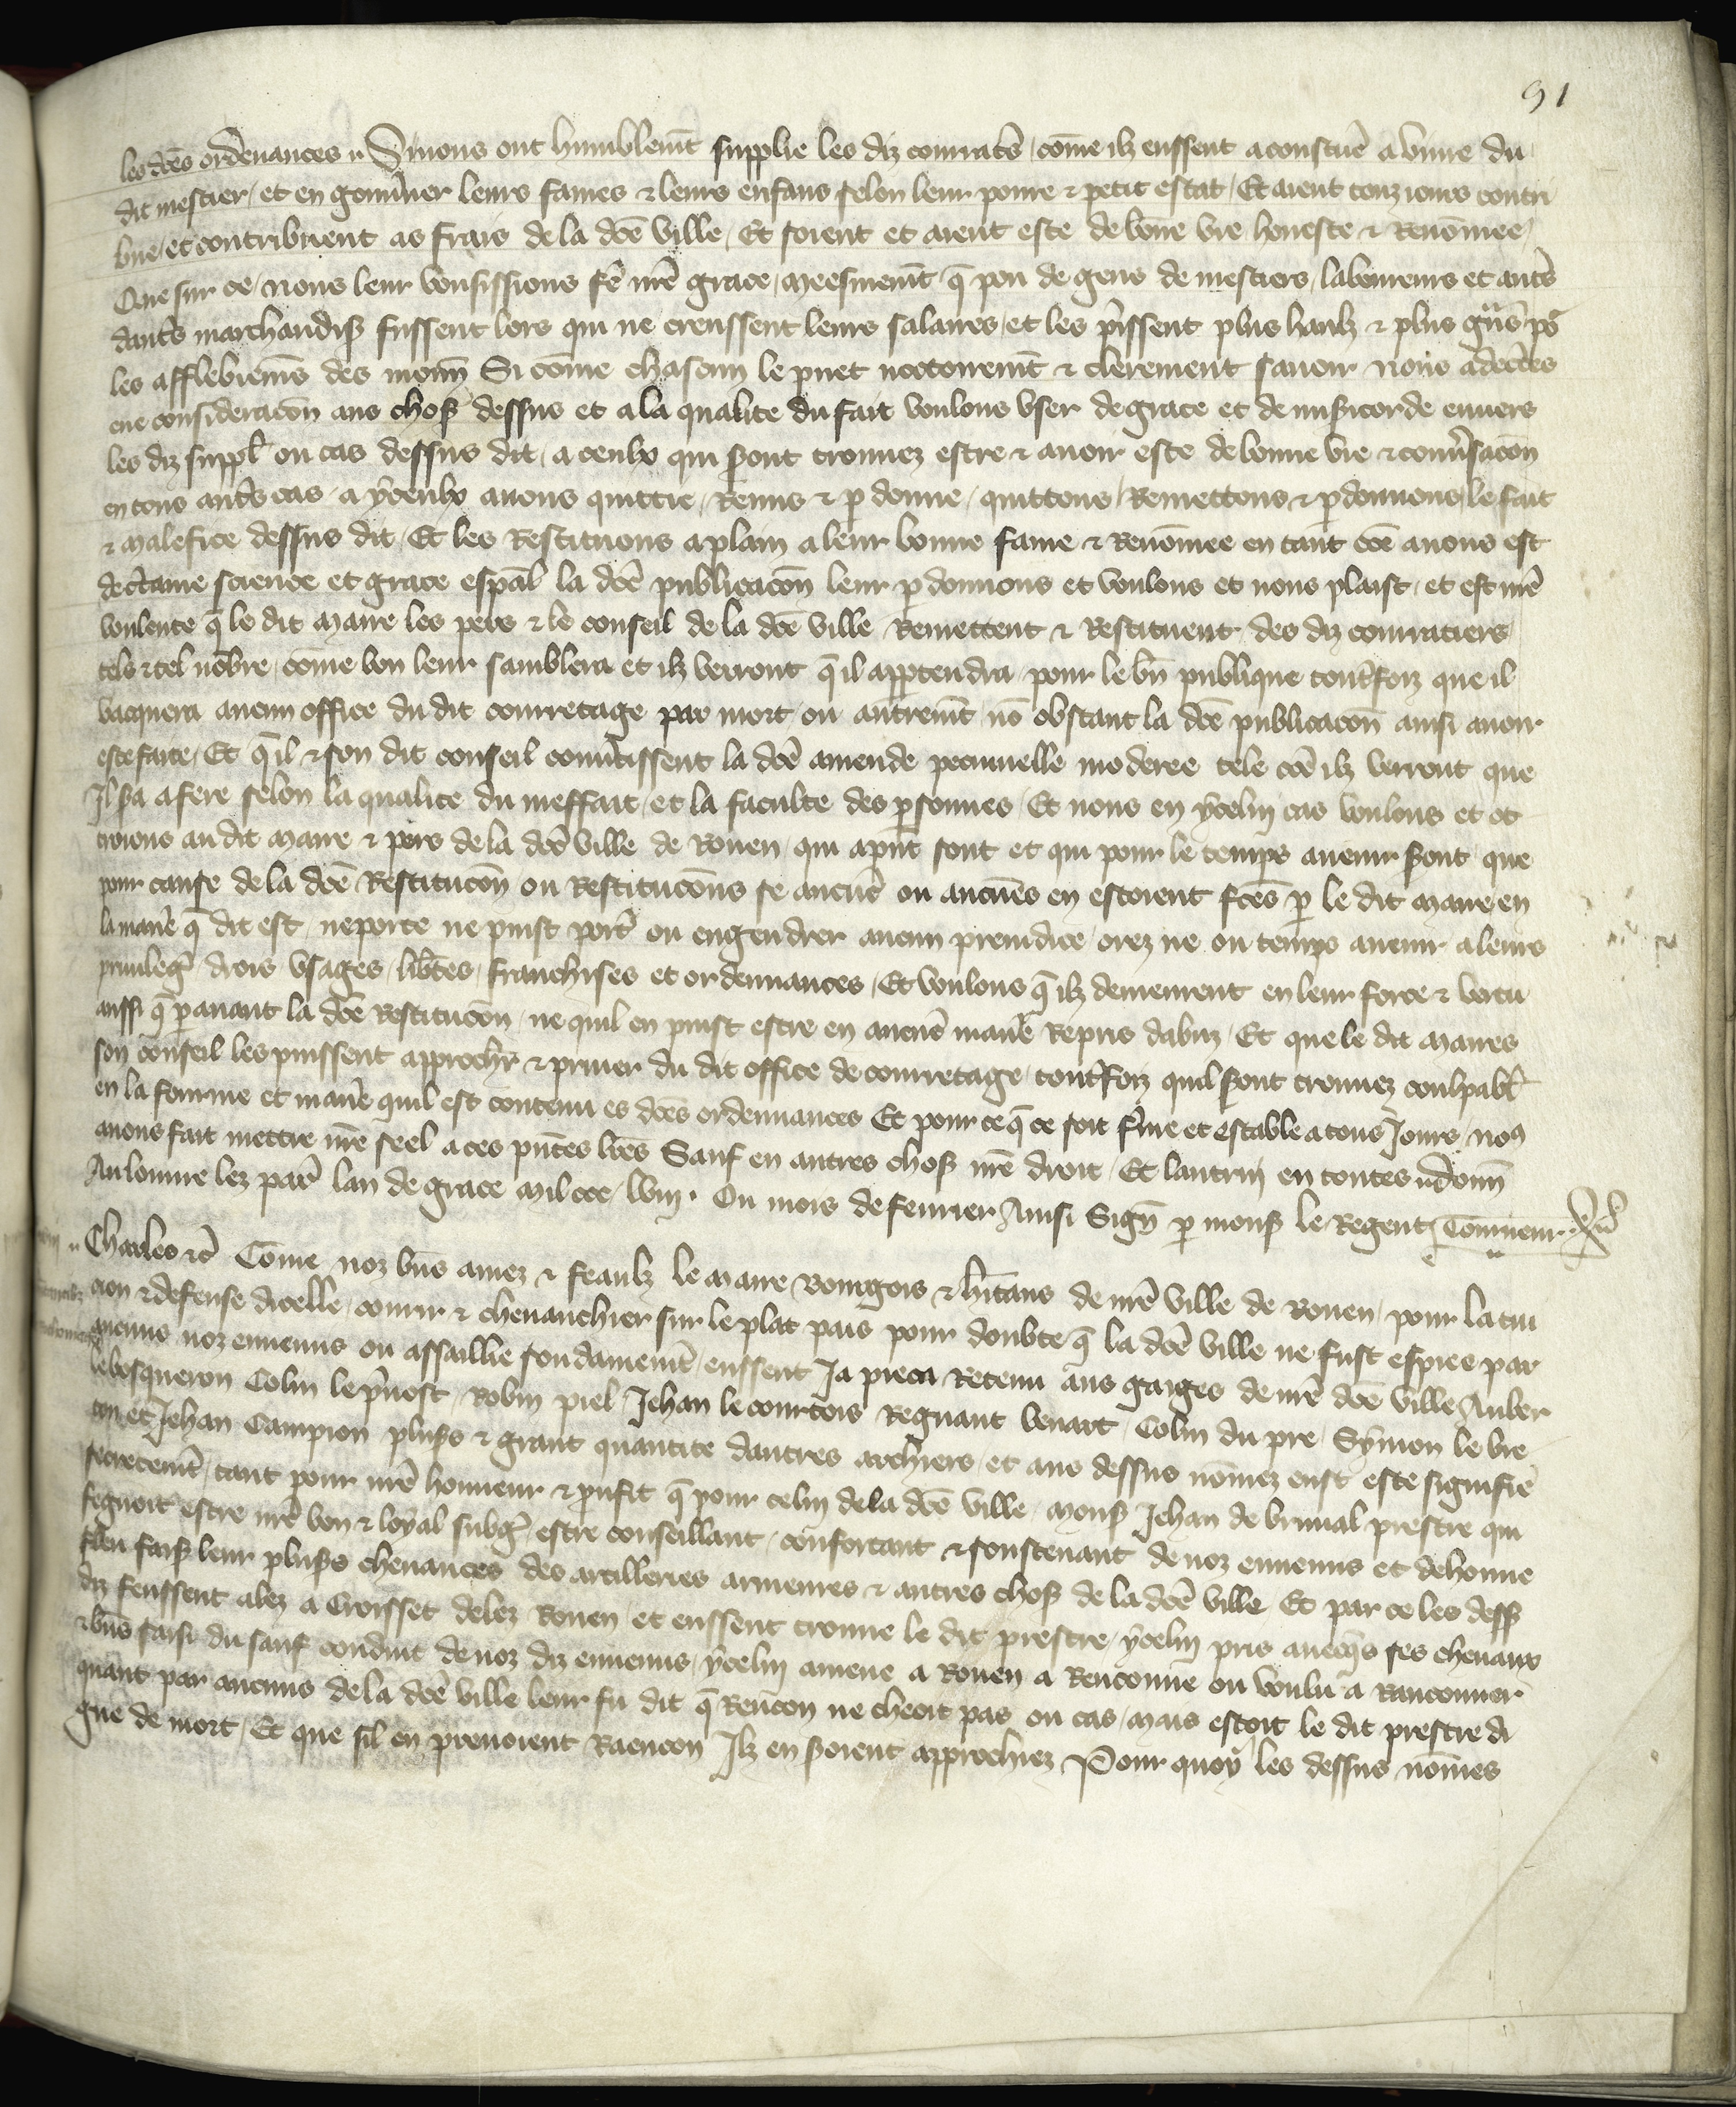 91
les dces ordenances Si nous ont humblemt supplie les diz couratrs, cōme ilz eussent acoustume a viure du
dit mestier, et en gouuner leurs fames & leurs enfans selon leur poure & petit estat, Et aient touziours contri
bue, et contribuent as frais de la dce ville, Et soient et aient este de bone vie honeste & Renomee,
Que sur ce, nous leur vousissions fe nre grace, meesmemt q pou de gens de mestiers, laboureurs et autrs
dautrs marchandis fussent lors qui ne creussent leurs salaires, et les prissent plus haulz & plus gns po
les afflebiemens des monn Si come chascun le puet notoiremt & clerement sauoir Nous adectes
eue consideracon aus chos dessus et a la qualite du fait voulons vser de grace et de misicorde enuers
les diz suppl ou cas dessus dit, a ceulx qui sont trouuez estre & auoir este de bonne vie & conuersacon
en tous autrs cas, a yceulx auons quittie, Remis & pdonne, quittons, Remettons & pdonnons, le fait
& malefice dessus dit, Et les Restituons a plain a leur bonne fame & Renomee en tant coe auons est
de ctaine science et grace espal la dce publicacon leur pdonnons et voulons et nous plaist, et est nre
voulente q le dit Maire les pers & le conseil de la dce ville Remettent & Restituent des diz couratiers
tels & tel nobre, cōme bon leur samblera et ilz verront q il apptendra, pour le bn publique toutesfoiz que il
vacquera aucun office du dit courretage par mort ou autremt no obstant la dce publicacon ainsi auoir
este faite, Et q il & son dit conseil conutissent la dce amende pecunielle moderee tele coe ilz verront que
Il sa a fere selon la qualite du meffait, et la faculte des psonnes, Et nous en ycelui cas voulons et ot
troions au dit Maire & pers de la dce ville de Rouen, qui apnt sont et qui pour le temps auenir sont que
pour cause de la dce Restitucon ou Restitucons se aucune ou aucunes en estoient fces p le dit Maire en
la maniere q dit est, ne porte ne puist porter ou engendrer aucun preiudice, orez ne ou temps auenir a leurs
priuileges drois vsages, libtes, franchises et ordennances, Et voulons q ilz demeurent en leur force & vertu
aussi q p auant la dce Restitucon, ne quil en puist estre en aucune maniere Repris dabuz, Et que le dit Maires
son conseil les puissent approchr & priuer du dit office de courretage, toutesfoiz quil sont trouuez coulpabl
en la fourme et maniere quil est contenu es dces ordennances Et pour ce q ce soit fme et estable a tous Jours, nous
auons fait mettre nre seel a ces pntes lres Sauf en autres chos nre droit, Et lautrui en toutes donn
Au louure lez pars lan de grace mil ccc lviii. Ou mois de feurier Ainsi Sign p mons le Regent
Charles &c Cōme noz bns amez & feaulz le Maire Bourgois & hitans de nre ville de Rouen, pour la tui
cion & defense dicelle, courir & cheuauchier sur le plat pais pour doubte q la dce ville ne fust espiee par
aucuns noz ennemis ou assaillie soudainemt, eussent Ja pieca Retenu aus gaiges de nre dce ville Auber
le bosqueron Colin le puost, Robin piel, Jehan le courtois Regnaut benart, Colin du pre Symon le bre
ton et Jehan Campion plus & grant quantite dautres archiers, et aus dessus nomez eust este signifie
secretemt, tant pour nre honneur & pufit q pour celui de la dce ville, Mons Jehan de brunal prestre qui
fegnoit estre nre bon & loyal subget, estre conseillant, confortant & soustenant de noz ennemis et de honne
fleu fais leur pluss cheuances des artilleries armeures & autres chos de la dce ville Et par ce les dess
diz feussent alez a Croisset delez Rouen et eussent trouue le dit prestre, ycelui pris auecques ses cheuaux
& bns saisi du sauf conduit de noz diz ennemis, ycelui amene a Rouen a Renconne ou voulu a ranconner
quant par aucuns de la dce ville leur fu dit q Rencon ne cheoit pas ou cas, mais estoit le dit prestre di
gne de mort, Et que sil en prenoient Raencon Ilz en soient approchiez Pour quoy les dessus nomes